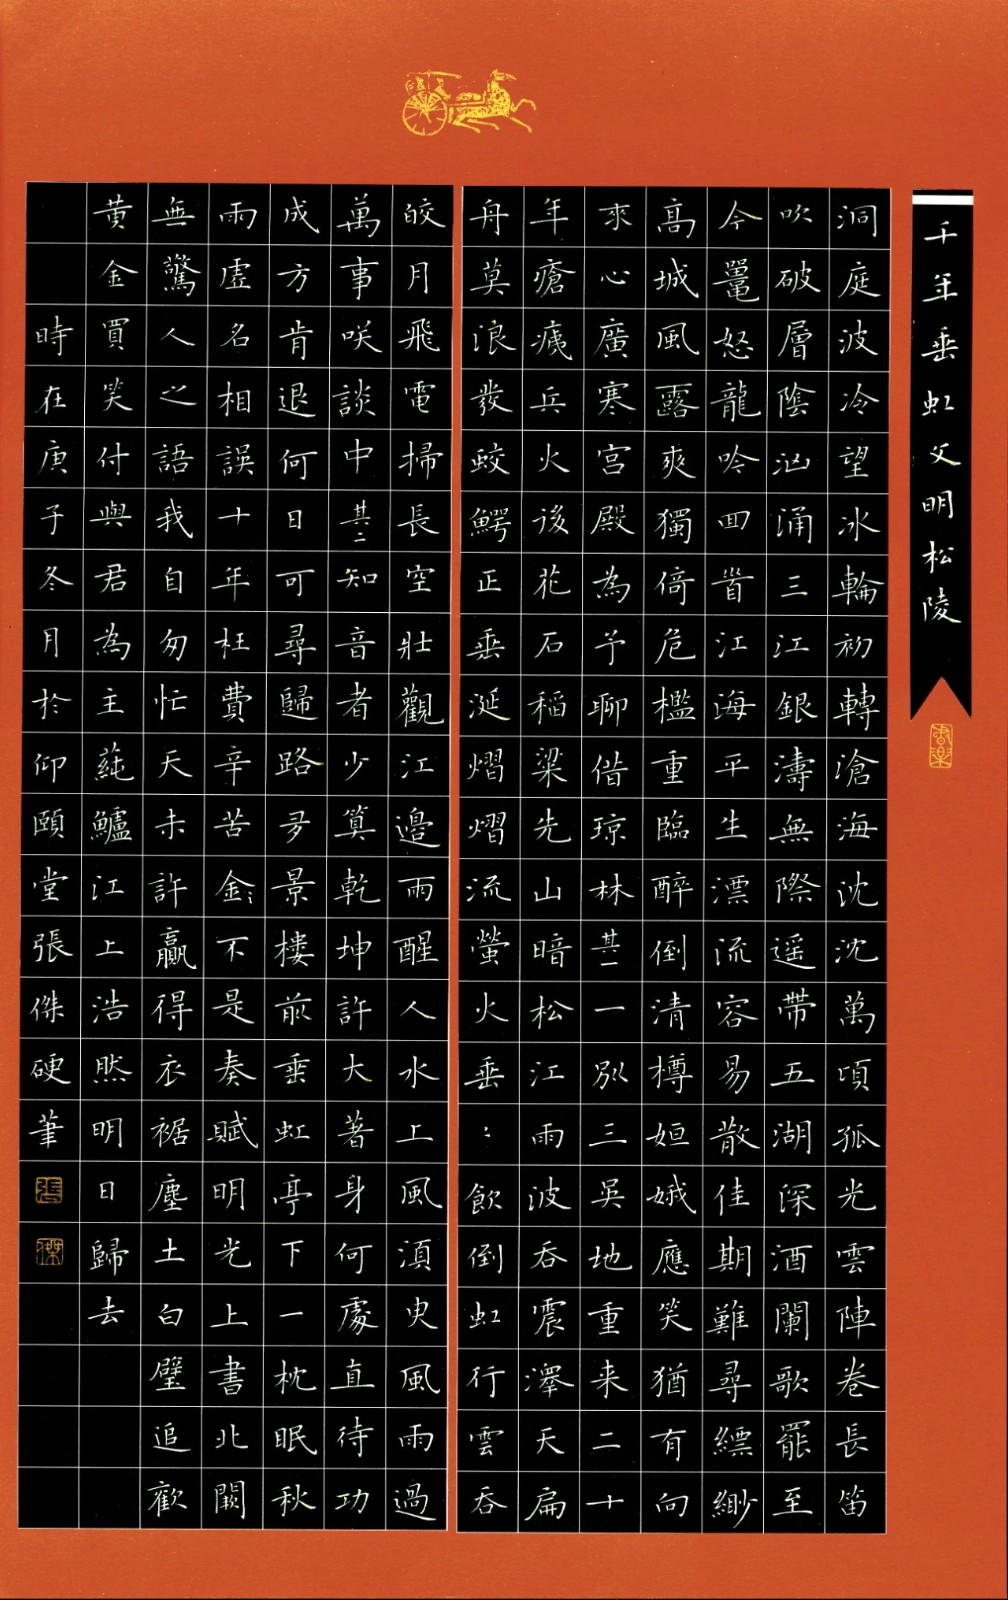 千年垂虹文明松陵
洞庭波冷望冰輪初轉滄海沈沈萬頃孤光雲陣卷長笛
吹破層陰洶涌三江銀濤無際遥帶五湖深酒闌歌罷至
今鼉怒龍吟回首江海平生漂流容易散佳期難尋縹緲
高城風露爽獨倚危檻重臨醉倒清樽姮娥應笑猶有向
來心廣寒宮殿為予聊借瓊林其一一別三吳地重来二十
年瘡痍兵火後花石稻粱先山暗松江雨波吞震澤天扁
舟莫浪發蛟鰐正垂涎熠熠流螢火垂:飲倒虹行雲吞
皎月飛電掃長空壯觀江邊雨醒人水上風須臾風雨過
萬事咲談中其二知音者少算乾坤許大著身何處直待功
成方肯退何日可尋歸路多景樓前垂虹亭下一枕眠秋
雨虛名相誤十年枉費辛苦金:不是奏賦明光上書北闕
無驚人之語我自匆忙天未許贏得衣裾塵土白璧追歡
黄金買笑付與君為主蒓鱸江上浩然明日歸去
時在庚子冬月於仰頤堂張傑硬筆
張
傑